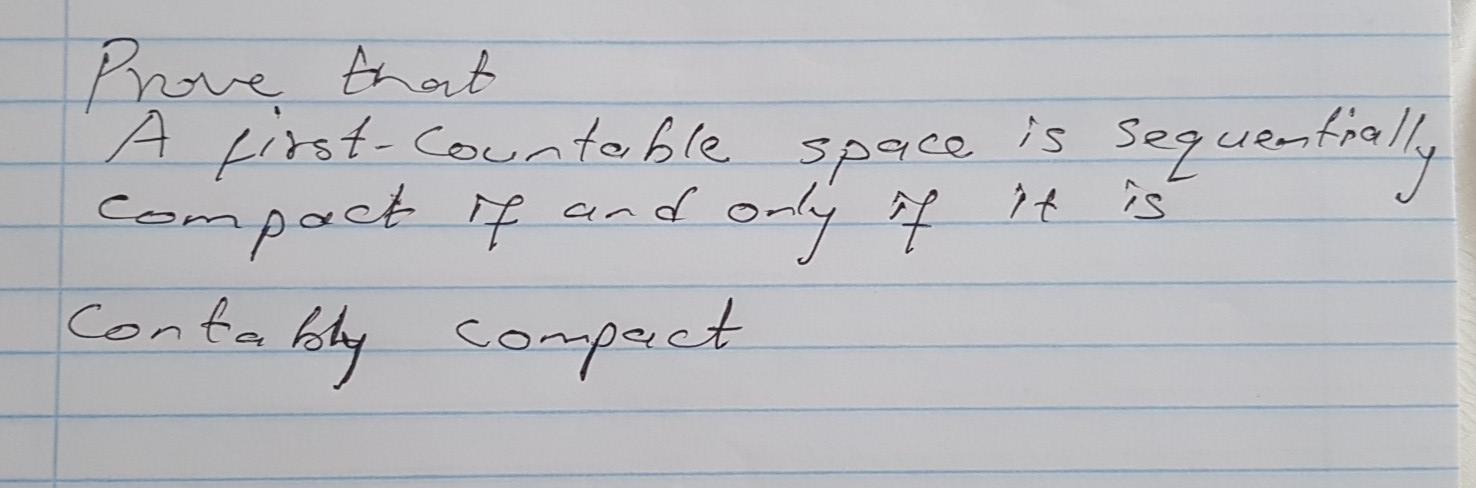 Prove that
A first-Countable space is sequentially
compact if and only if it is
Contably compact